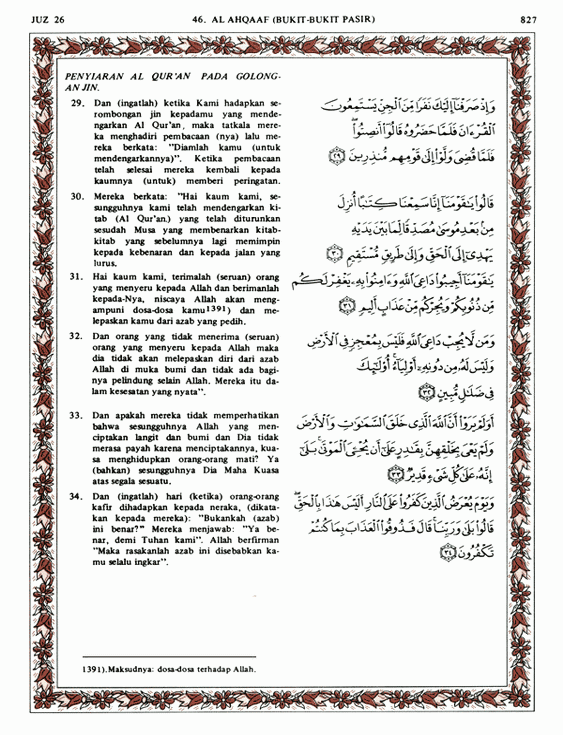 JUZ 26
46. AL AHQAAF (BUKIT-BUKIT PASIR)
827
PENYIARAN AL QUR'AN PADA GOLONG-
AN JIN.
29. Dan (ingatlah) ketika Kami hadapkan se-
rombongan jin kepadamu yang mende-
ngarkan Al Qur'an, maka tatkala mere-
ka menghadiri pembacaan (nya) lalu me-
reka berkata: "Diamlah kamu (untuk
mendengarkannya)". Ketika pembacaan
telah selesai mereka kembali kepada
kaumnya (untuk) memberi peringatan.
30. Mereka berkata: "Hai kaum kami, se-
sungguhnya kami telah mendengarkan ki-
tab (Al Qur'an) yang telah diturunkan
sesudah Musa yang membenarkan kitab-
kitab yang sebelumnya lagi memimpin
kepada kebenaran dan kepada jalan yang
lurus.
31. Hai kaum kami, terimalah (seruan) orang
yang menyeru kepada Allah dan berimanlah
kepada-Nya, niscaya Allah akan meng-
ampuni dosa-dosa kamu1391) dan me-
lepaskan kamu dari azab yang pedih.
32. Dan orang yang tidak menerima (seruan)
orang yang menyeru kepada Allah maka
dia tidak akan melepaskan diri dari azab
Allah di muka bumi dan tidak ada bagi-
nya pelindung selain Allah. Mereka itu da-
lam kesesatan yang nyata".
33. Dan apakah mereka tidak memperhatikan
bahwa sesungguhnya Allah yang men-
ciptakan langit dan bumi dan Dia tidak
merasa payah karena menciptakannya, kua-
sa menghidupkan orang-orang mati? Ya
(bahkan) sesungguhnya Dia Maha Kuasa
atas segala sesuatu.
34. Dan (ingatlah) hari (ketika) orang-orang
kafir dihadapkan kepada neraka, (dikata-
kan kepada mereka): "Bukankah (azab)
ini benar?" Mereka menjawab: "Ya be-
nar, demi Tuhan kami". Allah berfirman
"Maka rasakanlah azab ini disebabkan ka-
mu selalu ingkar".
وَإِذْ صَرَفْنَا إِلَيْكَ نَفَرًا مِّنَ ٱلْجِنِّ يَسْتَمِعُونَ
ٱلْقُرْءَانَ فَلَمَّا حَضَرُوهُ قَالُوٓا۟ أَنصِتُوا۟
فَلَمَّا قُضِىَ وَلَّوْا۟ إِلَىٰ قَوْمِهِم مُّنذِرِينَ ٢٩
قَالُوا۟ يَٰقَوْمَنَآ إِنَّا سَمِعْنَا كِتَٰبًا أُنزِلَ
مِنۢ بَعْدِ مُوسَىٰ مُصَدِّقًا لِّمَا بَيْنَ يَدَيْهِ
يَهْدِىٓ إِلَى ٱلْحَقِّ وَإِلَىٰ طَرِيقٍ مُّسْتَقِيمٍ ٣٠
يَٰقَوْمَنَآ أَجِيبُوا۟ دَاعِىَ ٱللَّهِ وَءَامِنُوا۟ بِهِۦ يَغْفِرْ لَكُم
مِّن ذُنُوبِكُمْ وَيُجِرْكُم مِّنْ عَذَابٍ أَلِيمٍ ٣١
وَمَن لَّا يُجِبْ دَاعِىَ ٱللَّهِ فَلَيْسَ بِمُعْجِزٍ فِى ٱلْأَرْضِ
وَلَيْسَ لَهُۥ مِن دُونِهِۦٓ أَوْلِيَآءُ أُو۟لَٰٓئِكَ
فِى ضَلَٰلٍ مُّبِينٍ ٣٢
أَوَلَمْ يَرَوْا۟ أَنَّ ٱللَّهَ ٱلَّذِى خَلَقَ ٱلسَّمَٰوَٰتِ وَٱلْأَرْضَ
وَلَمْ يَعْىَ بِخَلْقِهِنَّ بِقَٰدِرٍ عَلَىٰٓ أَن يُحْۦِىَ ٱلْمَوْتَىٰ بَلَىٰٓ
إِنَّهُۥ عَلَىٰ كُلِّ شَىْءٍ قَدِيرٌ ٣٣
وَيَوْمَ يُعْرَضُ ٱلَّذِينَ كَفَرُوا۟ عَلَى ٱلنَّارِ أَلَيْسَ هَٰذَا بِٱلْحَقِّ
قَالُوا۟ بَلَىٰ وَرَبِّنَا قَالَ فَذُوقُوا۟ ٱلْعَذَابَ بِمَا كُنتُمْ
تَكْفُرُونَ ٣٤
1391).Maksudnya: dosa-dosa terhadap Allah.